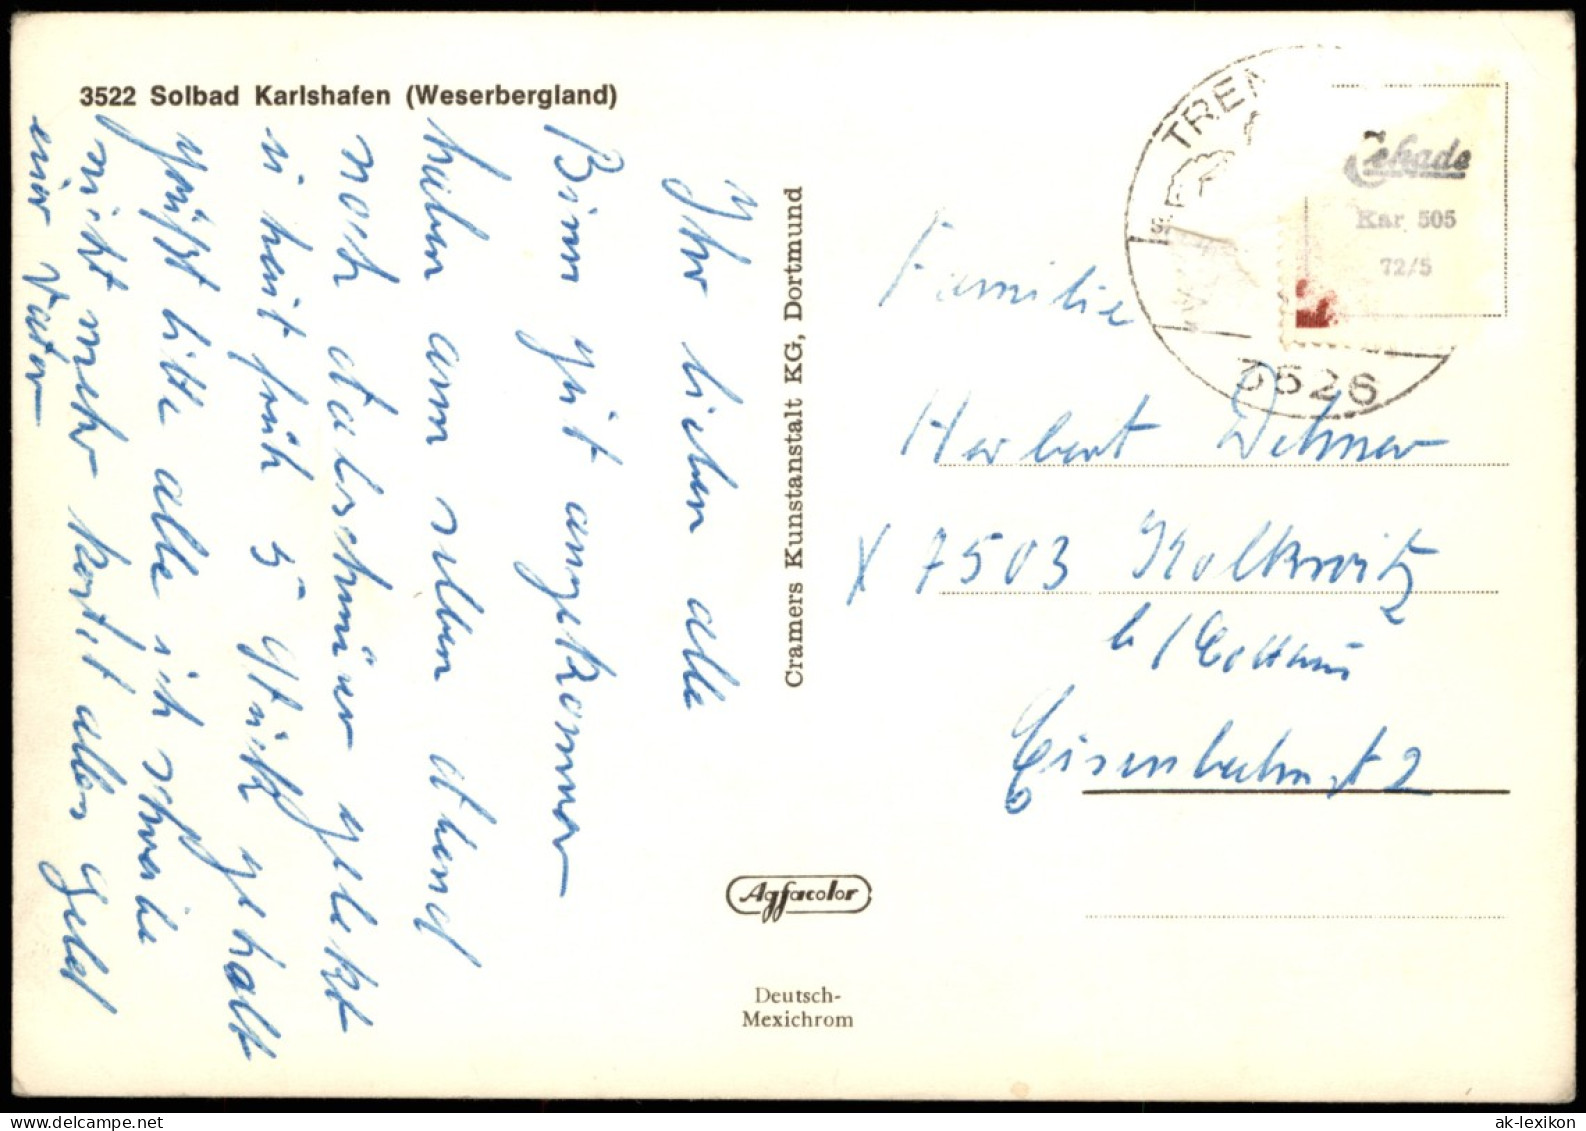 3522 Solbad Karlshafen (Weserbergland)
Ihr lieben alle
Binn gut angekommen
haben am selben abend
noch dalschmüser gelekt
u heut früh 5 Stück gehalt
grüßt bitte alle ich schreibe
nicht mehr kostet alles Geld
euer Vater
Cramers Kunstanstalt KG, Dortmund
Agfacolor
Deutsch-
Mexichrom
TREN
3526
Cekade
Kar 505
72/5
Familie
Herbert Dehmer
X 7503 Kolkwitz
b/Cottbus
Eisenbahnst 2
ak-lexikon